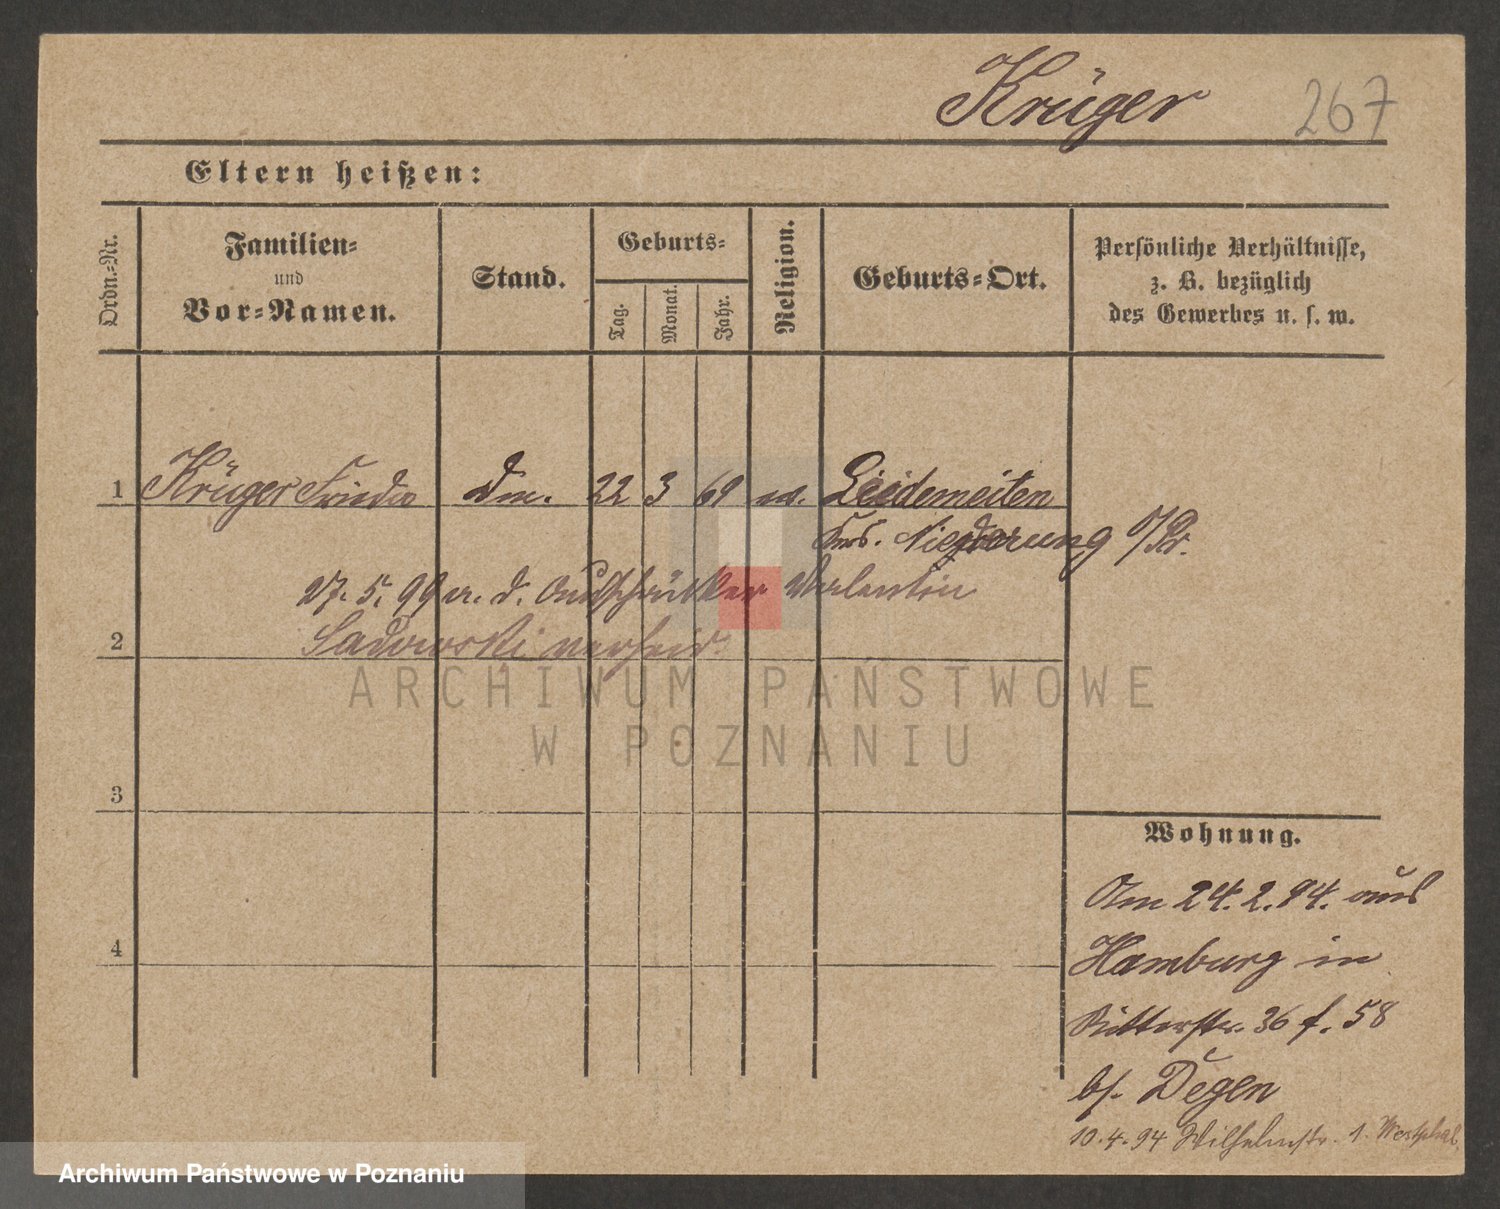 Krüger 267
Eltern heißen:
Ordn.-Nr.
Familien-
und
Vor-Namen.
Stand.
Geburts-
Tag.
Monat.
Jahr.
Religion.
Geburts-Ort.
Persönliche Verhältnisse,
z. B. bezüglich
des Gewerbes u. s. w.
1 Krüger Frieda 22 3 69 ev.
Niederung O/Pr.
27. 5. 99 m. d. Valentin
2 Sadowski verheir.
3
4
Wohnung.
Am 24. 2. 94. aus
Hamburg in
Ritterstr. 36 f. 58
bf. Degen
10. 4. 94 Wilhelmstr. 1. Westphal
ARCHIWUM PAŃSTWOWE
W POZNANIU
Archiwum Państwowe w Poznaniu